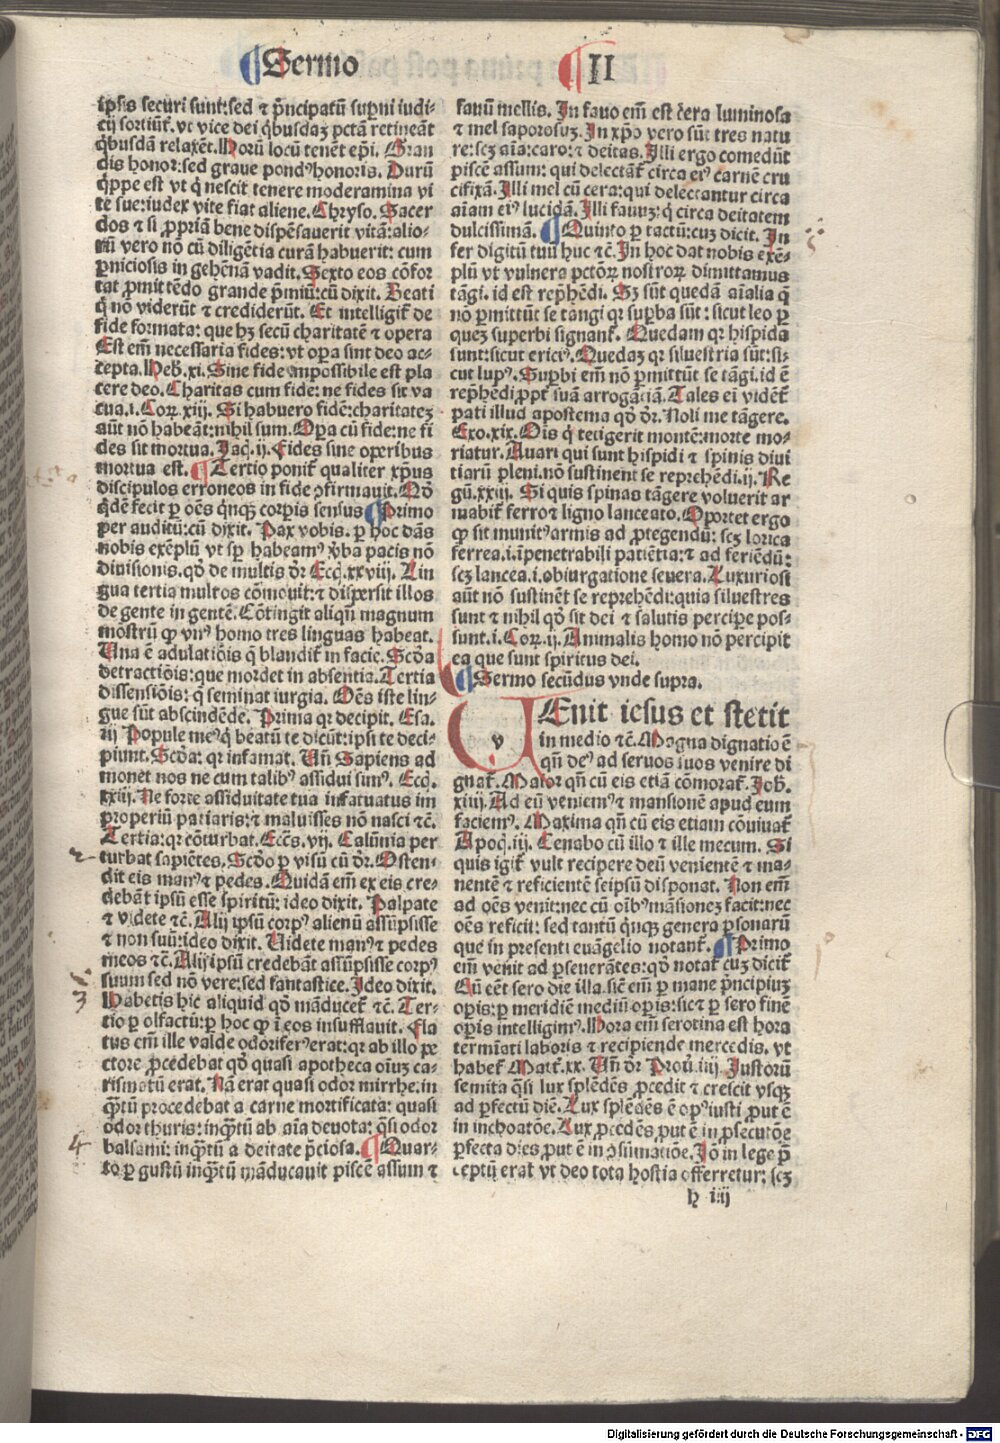 Sermo II
ipsis securi sunt:sed ⁊ p̄ncipatū suꝑni iudi-
cij sortiūt᷑.vt vice dei q̇busdaꝫ pctā retineāt
q̇busdā relaxēt.Horū locū tenēt ep̄i. Gran
dis honor:sed graue pondꝰ honoris. Durū
q̇ppe est vt q̇ nescit tenere moderamina vi
te sue:iudex vite fiat aliene.Chryso. Sacer
dos ⁊ si ꝓpriā bene dispēsauerit vitā:alio-
rū vero nō cū diligētia curā habuerit: cum
ꝑniciosis in gehēnā vadit.Sexto eos cōfor
tat ꝓmittēdo grande p̄miū:cū dixit. Beati
q̇ nō viderūt ⁊ crediderūt. Et intelligit᷑ de
fide formata: que hꝫ secū charitatē ⁊ opera
Est em̄ necessaria fides: vt oꝑa sint deo ac-
cepta.Heb.xi.Sine fide impossibile est pla
cere deo.Charitas cum fide: ne fides sit va
cua.i.Coꝝ.xiij. Si habuero fidē:charitateꝫ
aūt nō habeā:nihil sum.Oꝑa cū fide:ne fi
des sit mortua. Jacͣ.ij.Fides sine operibus
mortua est. Tertio ponit᷑ qualiter xp̄us
discipulos erroneos in fide ꝯfirmauit.Qd̓
q̇dē fecit ꝑ oēs q̇nqꝫ corꝑis sensus Primo
per auditū:cū dixit. Pax vobis. ꝑ hoc dās
nobis exēplū vt sꝑ habeamꝰ v̓ba pacis nō
diuisionis.qd̓ de m̄ultis dr̄ Eccͣ.xxviij. Lin
gua tertia multos cōmouit:⁊ dispersit illos
de gente in gentē.Cōtingit aliqn̄ magnum
mōstrū ꝙ vnꝰ homo tres linguas habeat.
Una ē adulatiōis q̄ blandit᷑ in facie. Scd̓a
detractiōis:que mordet in absentia. Tertia
dissensiōis: q̄ seminat iurgia. Oēs iste lin-
gue sūt abscindēde. Prima qꝛ decipit. Esa.
iij Popule meꝰ q̇ beatū te dicūt:ipsi te deci-
piunt. Scd̓a: qꝛ infamat. Un̄ Sapiens ad
monet nos ne cum talibꝰ assidui simꝰ. Eccͣ.
xxiij. Ne forte assiduitate tua infatuatus im
properiū patiaris:⁊ maluisses nō nasci ⁊c̄.
Tertia: qꝛ cōturbat. Eccēs. vij. Calūnia per
turbat sapiētes. Scd̓o ꝑ visū cū dr̄. Osten-
dit eis manꝰ ⁊ pedes. Quidā em̄ ex eis cre-
debāt ipsū esse spiritū: ideo dixit. Palpate
⁊ videte ⁊c̄. Alij ipsū corpꝰ alienū assūpsisse
⁊ non suū:ideo dixit. Uidete manꝰ ⁊ pedes
meos ⁊c̄. Alij ipsū credebāt assūpsisse corpꝰ
suum sed nō vere:sed fantastice. Ideo dixit.
Habetis hic aliquid qd̓ māducet᷑ ⁊c̄. Ter-
tio ꝑ olfactū:ꝑ hoc ꝙ ī eos insufflauit. Fla
tus em̄ ille valde odoriferꝰ erat:qꝛ ab illo pe
ctore ꝓcedebat qd̓ quasi apotheca oīuꝫ ca-
rismatū erat. Nā erat quasi odor mirrhe:in
q̄ꝫtū procedebat a carne mortificata: quasi
odor thuris: inq̄ꝫtū ab aīa deuota: q̄si odor
balsami: inq̄ꝫtū a deitate p̄ciosa. Quar-
to ꝑ gustū inq̄ꝫtū māducauit piscē assum ⁊
fauū mellis. In fauo em̄ est cera luminosa
⁊ mel saporosuꝫ. In xp̄o vero sūt tres natu
re:scꝫ aīa:caro:⁊ deitas. Illi ergo comedūt
piscē assum: qui delectāt᷑ circa eiꝰ carnē cru
cifixā. Illi mel cū cera: qui delectantur circa
aīam eiꝰ lucidā. Illi fauuꝫ: q̇ circa deitatem
dulcissimā. Quinto ꝑ tactū:cuꝫ dicit. In
fer digitū tuū huc ⁊c̄. In hoc dat nobis exē-
plū vt vulnera pctōꝝ nostroꝝ dimittamus
tāgi. id est rep̄hēdi. Sꝫ sūt quedā aīalia q̄
nō ꝑmittūt se tangi qꝛ suꝑba sūt: sicut leo ꝑ
quez superbi signant᷑. Quedam qꝛ hispida
sunt:sicut ericiꝰ. Quedaꝫ qꝛ siluestria sūt:si-
cut lupꝰ. Suꝑbi em̄ nō ꝑmittūt se tāgi. id ē
rep̄hēdi ꝓpt̓ suā arrogātiā. Tales em̄ vidēt᷑
pati illud apostema qd̓ dr̄. Noli me tāgere.
Exo.xix. Oīs q̇ tetigerit montē: morte mo-
riatur. Auari qui sunt hispidi ⁊ spinis diui
tiarū pleni. nō sustinent se reprehēdi. ij. Re
gū.xxiij. Si quis spinas tāgere voluerit ar
mabit᷑ ferro ⁊ ligno lanceato. Oportet ergo
ꝙ sit munitꝰ armis ad ꝓtegendū: scꝫ lorica
ferrea.i.īpenetrabili patiētia:⁊ ad feriēdū:
scꝫ lancea.i.obiurgatione seuera. Luxuriosi
aūt nō sustinēt se reprehēdi:quia siluestres
sunt ⁊ nihil qd̓ sit dei ⁊ salutis percipe pos-
sunt. i. Coꝝ. ij. Animalis homo nō percipit
ea que sunt spiritus dei.
Sermo secūdus vnde supra.
v Enit iesus et stetit
in medio ⁊c̄. Magna dignatio ē
qn̄ deꝰ ad seruos suos venire di
gnat᷑. Maior qn̄ cū eis etiā cōmorat᷑. Joh̄.
xiiij. Ad eū veniemꝰ ⁊ mansionē apud eum
faciemꝰ. Maxima qn̄ cū eis etiam cōuiuat᷑
Apoc̄. iij. Cenabo cū illo ⁊ ille mecum. Si
quis igit᷑ vult recipere deū venientē ⁊ ma-
nentē ⁊ reficientē seipsū disponat. Non em̄
ad oēs venit:nec cū oībꝰ māsionez facit:nec
oēs reficit: sed tantū q̇nqꝫ genera ꝑsonarū
que in presenti euāgelio notant᷑. Primo
em̄ venit ad ꝑseuerātes: qd̓ notat᷑ cuꝫ dicit᷑
Cū eēt sero die illa. sic̄ em̄ ꝑ mane p̄ncipiuꝫ
oꝑis: ꝑ meridiē mediū oꝑis: sic ⁊ ꝑ sero finē
oꝑis intelligimꝰ. Hora em̄ serotina est hora
termīati laboris ⁊ recipiende mercedis. vt
habet᷑ Matt᷑.xx. Un̄ dr̄ Prou̓. iiij. Justorū
semita q̄si lux splēdēs ꝓcedit ⁊ crescit vsqꝫ
ad ꝑfectū diē. Lux splēdēs ē opꝰ iusti ꝓut ē
in inchoatōe. Lux ꝓcedēs ꝓut ē in ꝓsecutōe
ꝑfecta dies ꝓut ē in ꝯsūmatiōe. Jō in lege p̄
ceptū erat vt deo tota hostia offerretur: scꝫ
h iiij
2
3
4
Digitalisierung gefördert durch die Deutsche Forschungsgemeinschaft - DFG